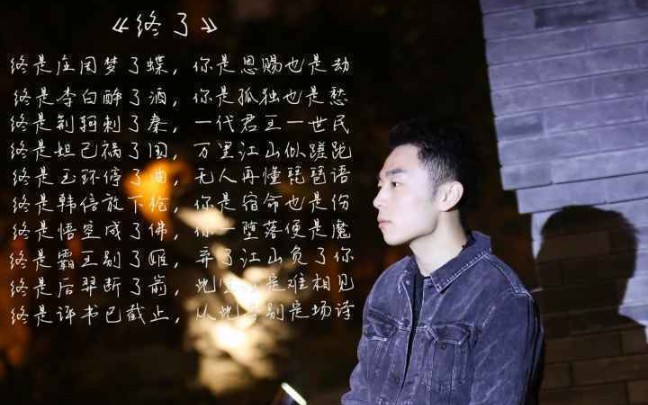 《终了》
终是庄周梦了蝶，你是恩赐也是劫
终是李白醉了酒，你是孤独也是愁
终是荆轲刺了秦，一代君王一世民
终是妲己祸了国，万里江山似蹉跎
终是玉环停了曲，无人再懂琵琶语
终是韩信放下枪，你是宿命也是伤
终是悟空成了佛，你一堕落便是魔
终是霸王别了姬，弃了江山负了你
终是后羿断了箭，是难相见
终是评书已截止，从别是场诗